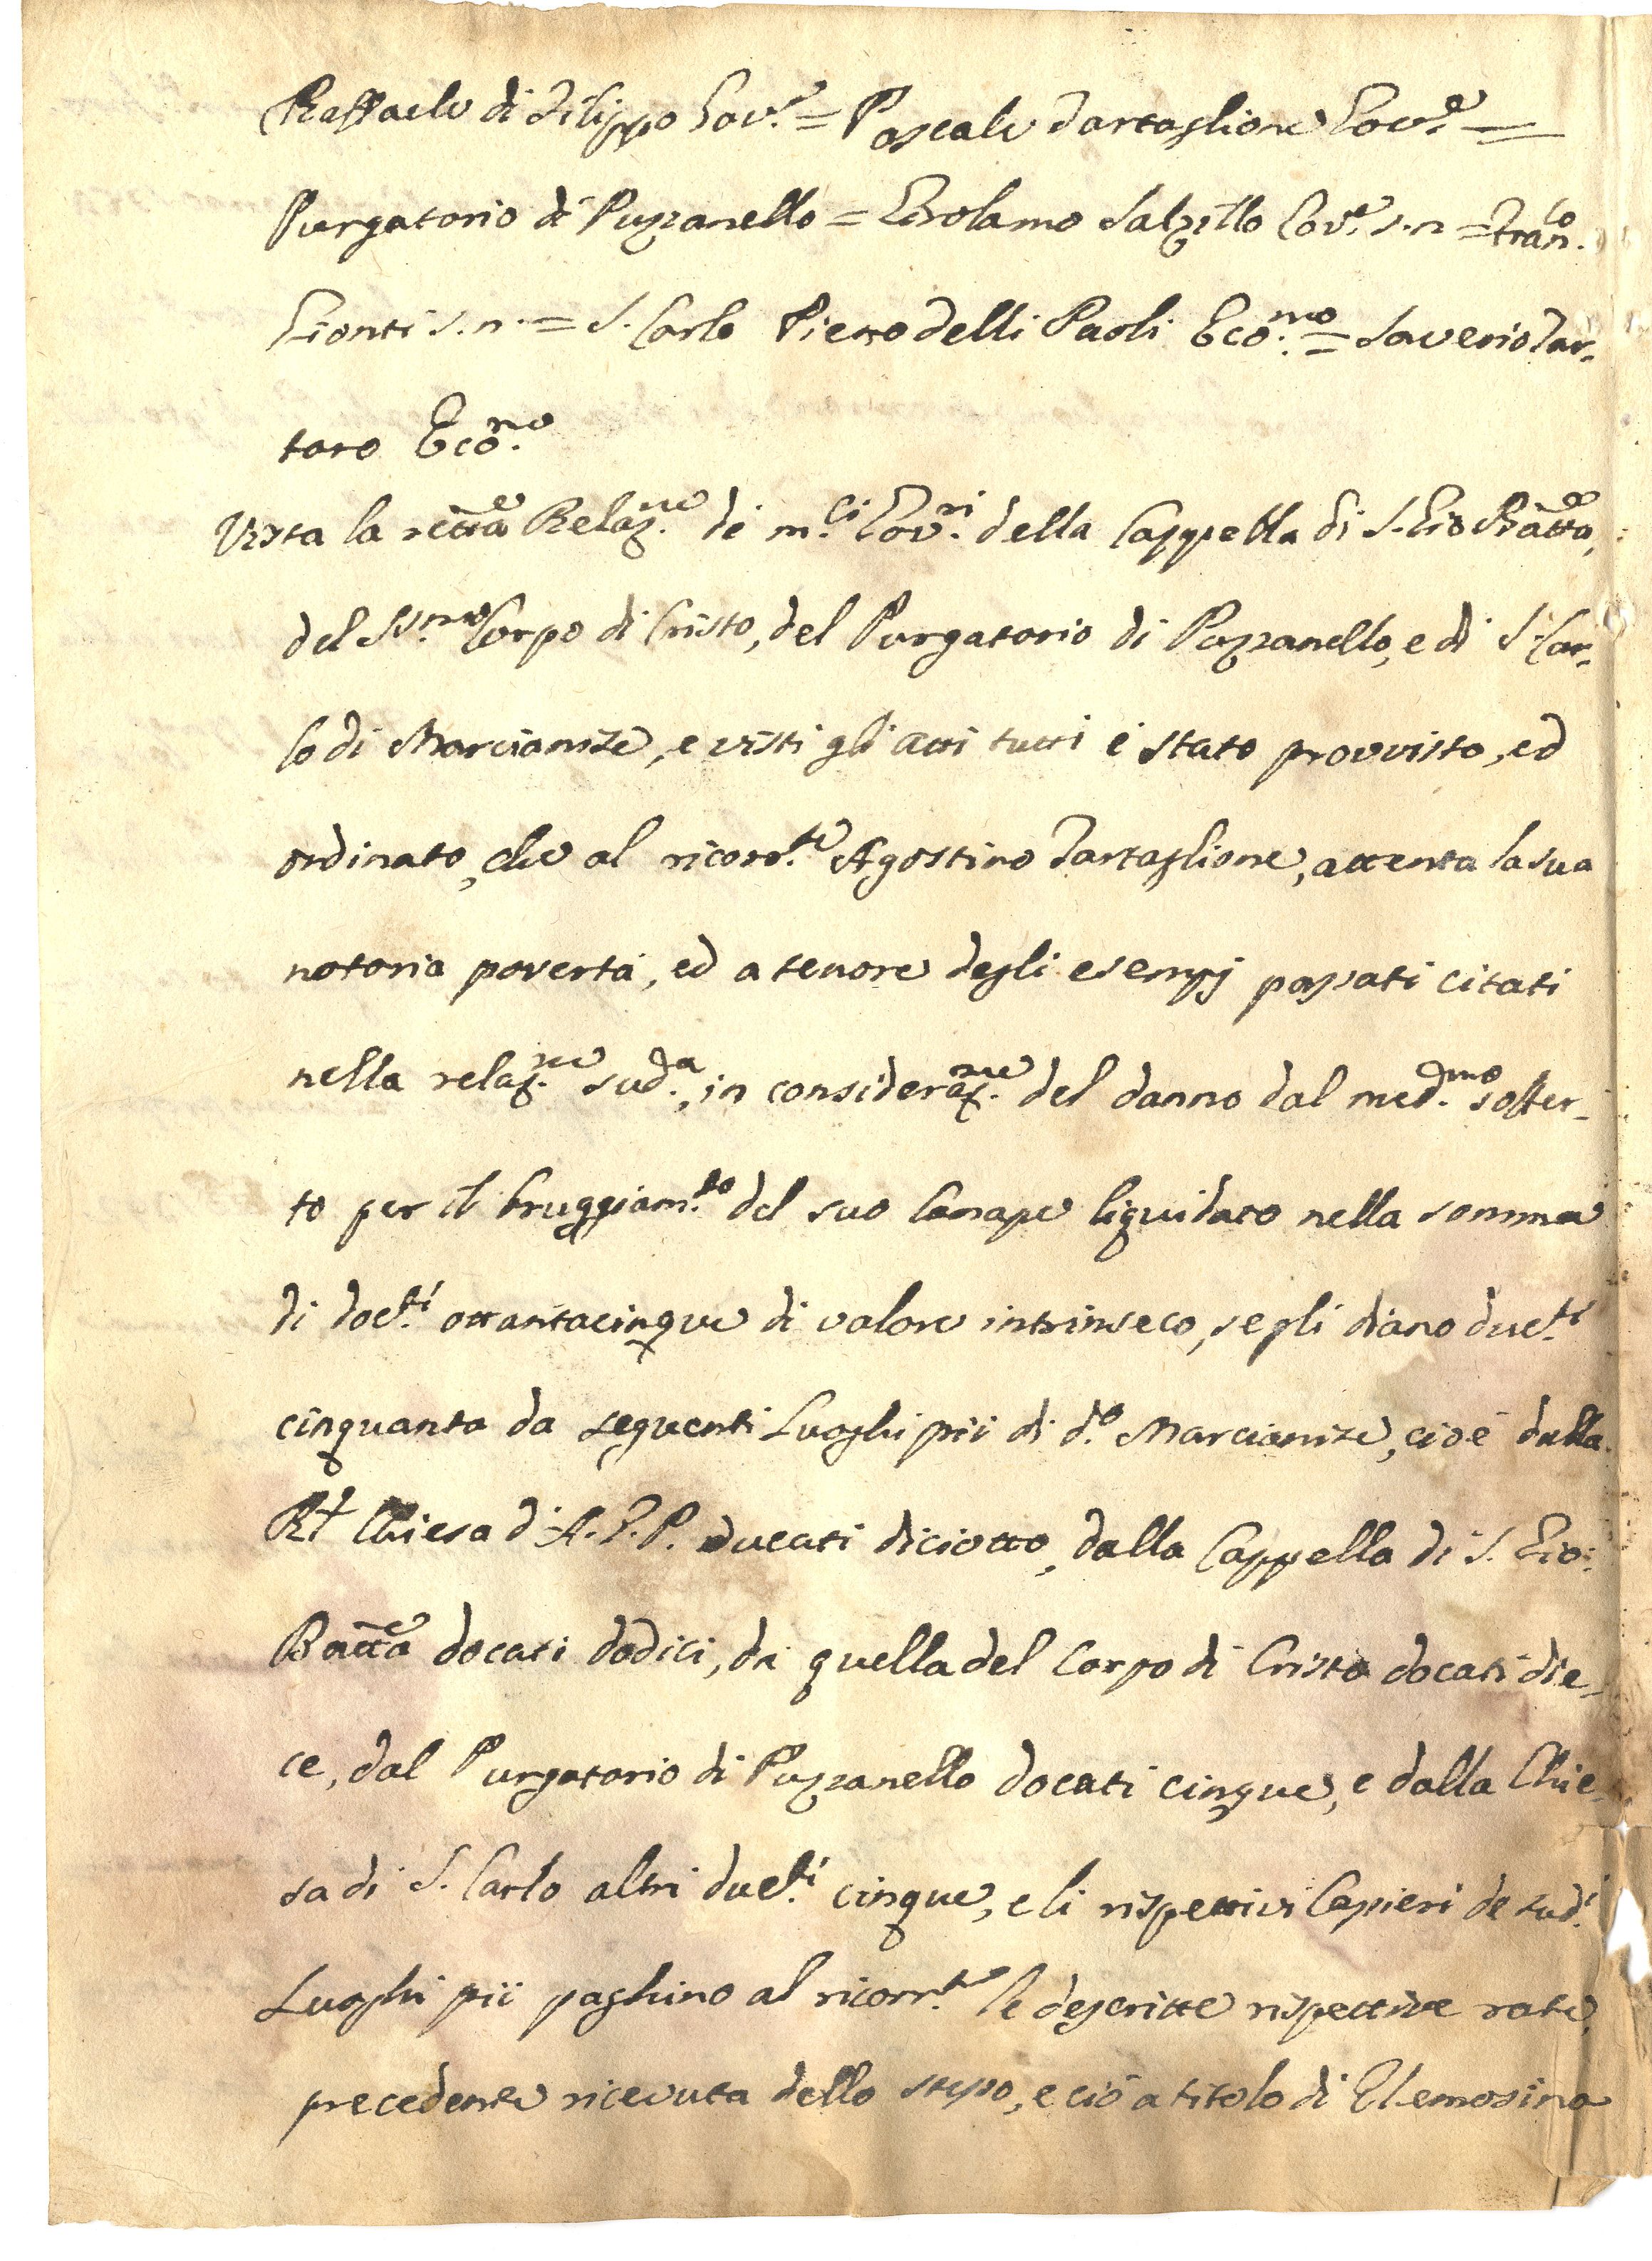 Raffaele di Filippo Gov.e = Pascale Tartaglione Gov.e =
Purgatorio di Puzzanello = Girolamo Salzillo Gov.e s.n = Fran.co
Gionti s.n. = S. Carlo Pietro delli Paoli Eco.mo = Saverio Tar-
taro Eco.mo
Vista la rettra Relaz.ne de m.ci Gov.ri della Cappella di S. Gio Batta,
del SS.mo Corpo di Cristo, del Purgatorio di Puzzanello, e di S. Car-
lo di Marcianise, e visti gli atti tutti è stato provvisto, ed
ordinato, che al ricorr.te Agostino Tartaglione, attenta la sua
notoria povertà, ed a tenore degli esempj passati citati
nella relaz.ne sud.a, in consideraz.ne del danno dal med.mo soffer-
to per il bruggiam.to del suo Canape liquidato nella somma
di doc.ti ottantacinque di valore intrinseco, se gli diano duc.ti
cinquanta da seguenti Luoghi pii di d.o Marcianise, cioè dalla
Chiesa d'A.G.P. ducati diciotto, dalla Cappella di S. Gio:
Batta docati dodici, da quella del Corpo di Cristo docati die-
ce, dal Purgatorio di Puzzanello docati cinque, e dalla Chie-
sa di S. Carlo altri duc.ti cinque, e li rispettivi Cassieri de sud.i
Luoghi pii paghino al ricorr.te le descritte rispettive rate,
precedente ricevuta dello stesso, e ciò a titolo di Elemosina